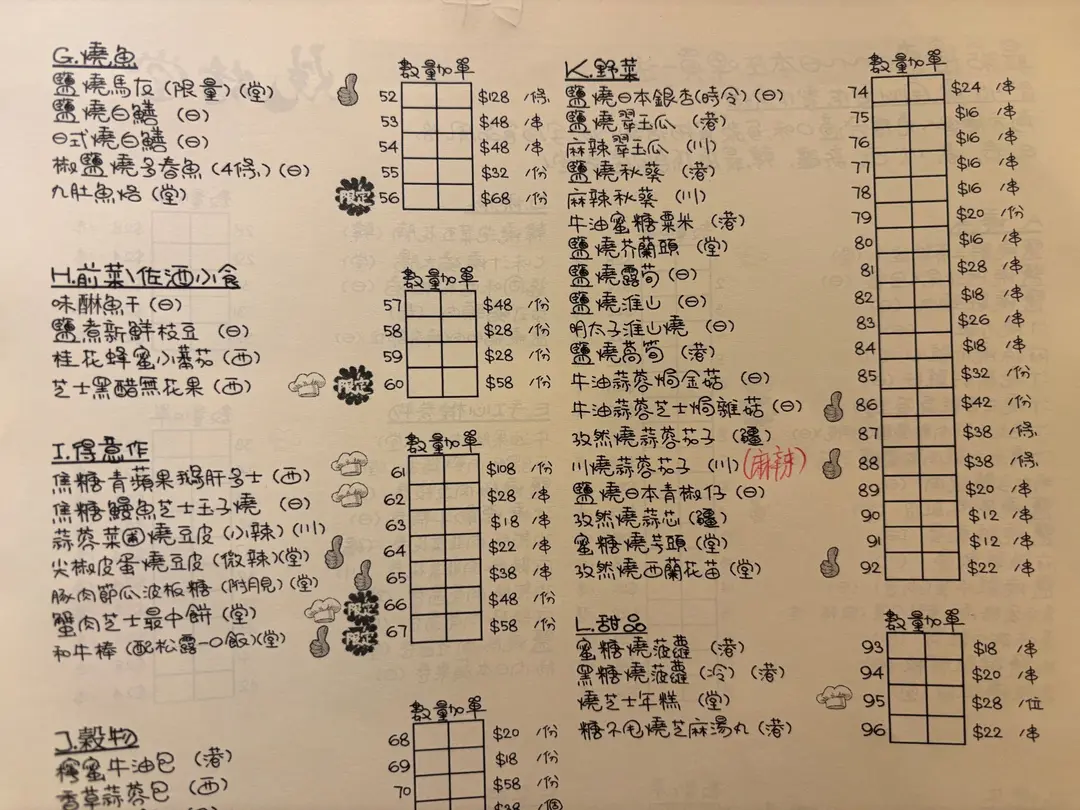 G.燒魚
數量 加單
鹽燒馬友 (限量) (堂) 52 $128 /條
鹽燒白鱔 (日) 53 $48 /串
日式燒白鱔 (日) 54 $48 /串
椒鹽燒多春魚 (4條) (日) 55 $32 /份
九肚魚烙 (堂) 限定 56 $68 /份
H.前菜\佐酒小食
數量 加單
味醂魚干 (日) 57 $48 /份
鹽煮新鮮枝豆 (日) 58 $28 /份
桂花蜂蜜小蕃茄 (西) 59 $28 /份
芝士黑醋無花果 (西) 限定 60 $58 /份
I.得意作
數量 加單
焦糖青蘋果鵝肝多士 (西) 61 $108 /份
焦糖鰻魚芝士玉子燒 (日) 62 $28 /串
蒜蓉菜圃燒豆皮 (小辣) (川) 63 $18 /串
尖椒皮蛋燒豆皮 (微辣) (堂) 64 $22 /串
豚肉節瓜波板糖 (附月見) (堂) 65 $38 /串
蟹肉芝士最中餅 (堂) 限定 66 $48 /份
和牛棒 (配松露一口飯) (堂) 限定 67 $58 /份
J.穀物
數量 加單
蜜牛油包 (港) 68 $20 /份
香草蒜蓉包 (西) 69 $18 /份
70 $58 /份
$38 /個
K.野菜
數量 加單
鹽燒日本銀杏(時令) (日) 74 $24 /串
鹽燒翠玉瓜 (港) 75 $16 /串
麻辣翠玉瓜 (川) 76 $16 /串
鹽燒秋葵 (港) 77 $16 /串
麻辣秋葵 (川) 78 $16 /串
牛油蜜糖粟米 (港) 79 $20 /份
鹽燒芥蘭頭 (堂) 80 $16 /串
鹽燒露筍 (日) 81 $28 /串
鹽燒淮山 (日) 82 $18 /串
明太子淮山燒 (日) 83 $26 /串
鹽燒萵筍 (港) 84 $18 /串
牛油蒜蓉焗金菇 (日) 85 $32 /份
牛油蒜蓉芝士焗雜菇 (日) 86 $42 /份
孜然燒蒜蓉茄子 (疆) 87 $38 /條
川燒蒜蓉茄子 (川) (麻辣) 88 $38 /條
鹽燒日本青椒仔 (日) 89 $20 /串
孜然燒蒜芯 (疆) 90 $12 /串
蜜糖燒芋頭 (堂) 91 $12 /串
孜然燒西蘭花苗 (堂) 92 $22 /串
L.甜品
數量 加單
蜜糖燒菠蘿 (港) 93 $18 /串
黑糖燒菠蘿 (冷) (港) 94 $20 /串
燒芝士年糕 (堂) 95 $28 /位
糖不甩燒芝麻湯丸 (港) 96 $22 /串